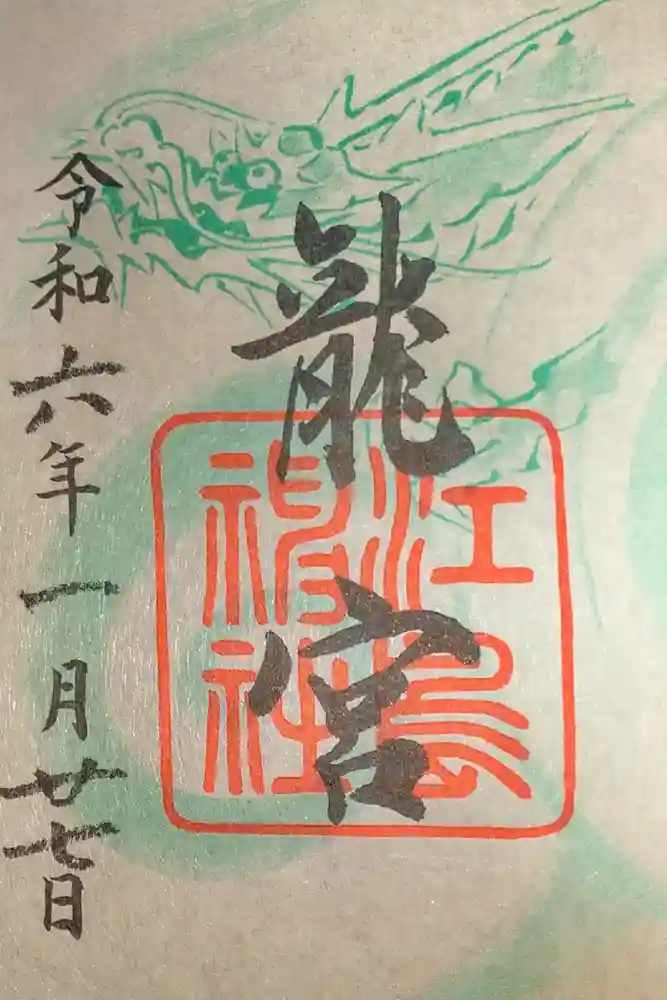 龍宮
江島
神社
令和六年一月廿七日